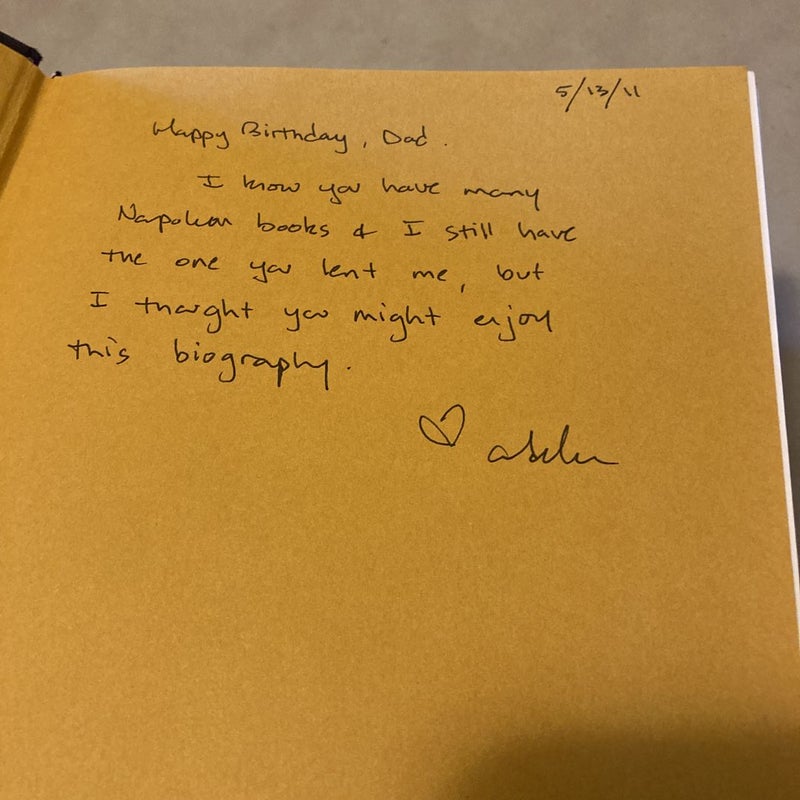 5/13/11
Happy Birthday, Dad.
I know you have many
Napoleon books & I still have
the one you lent me, but
I thought you might enjoy
this biography.
♡